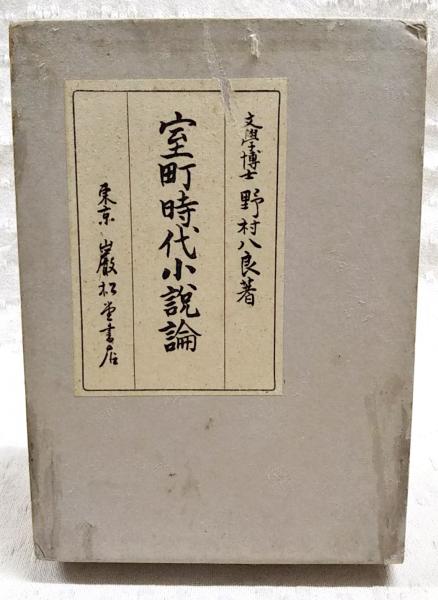 文學博士 野村八良著
室町時代小説論
東京 巖松堂書店